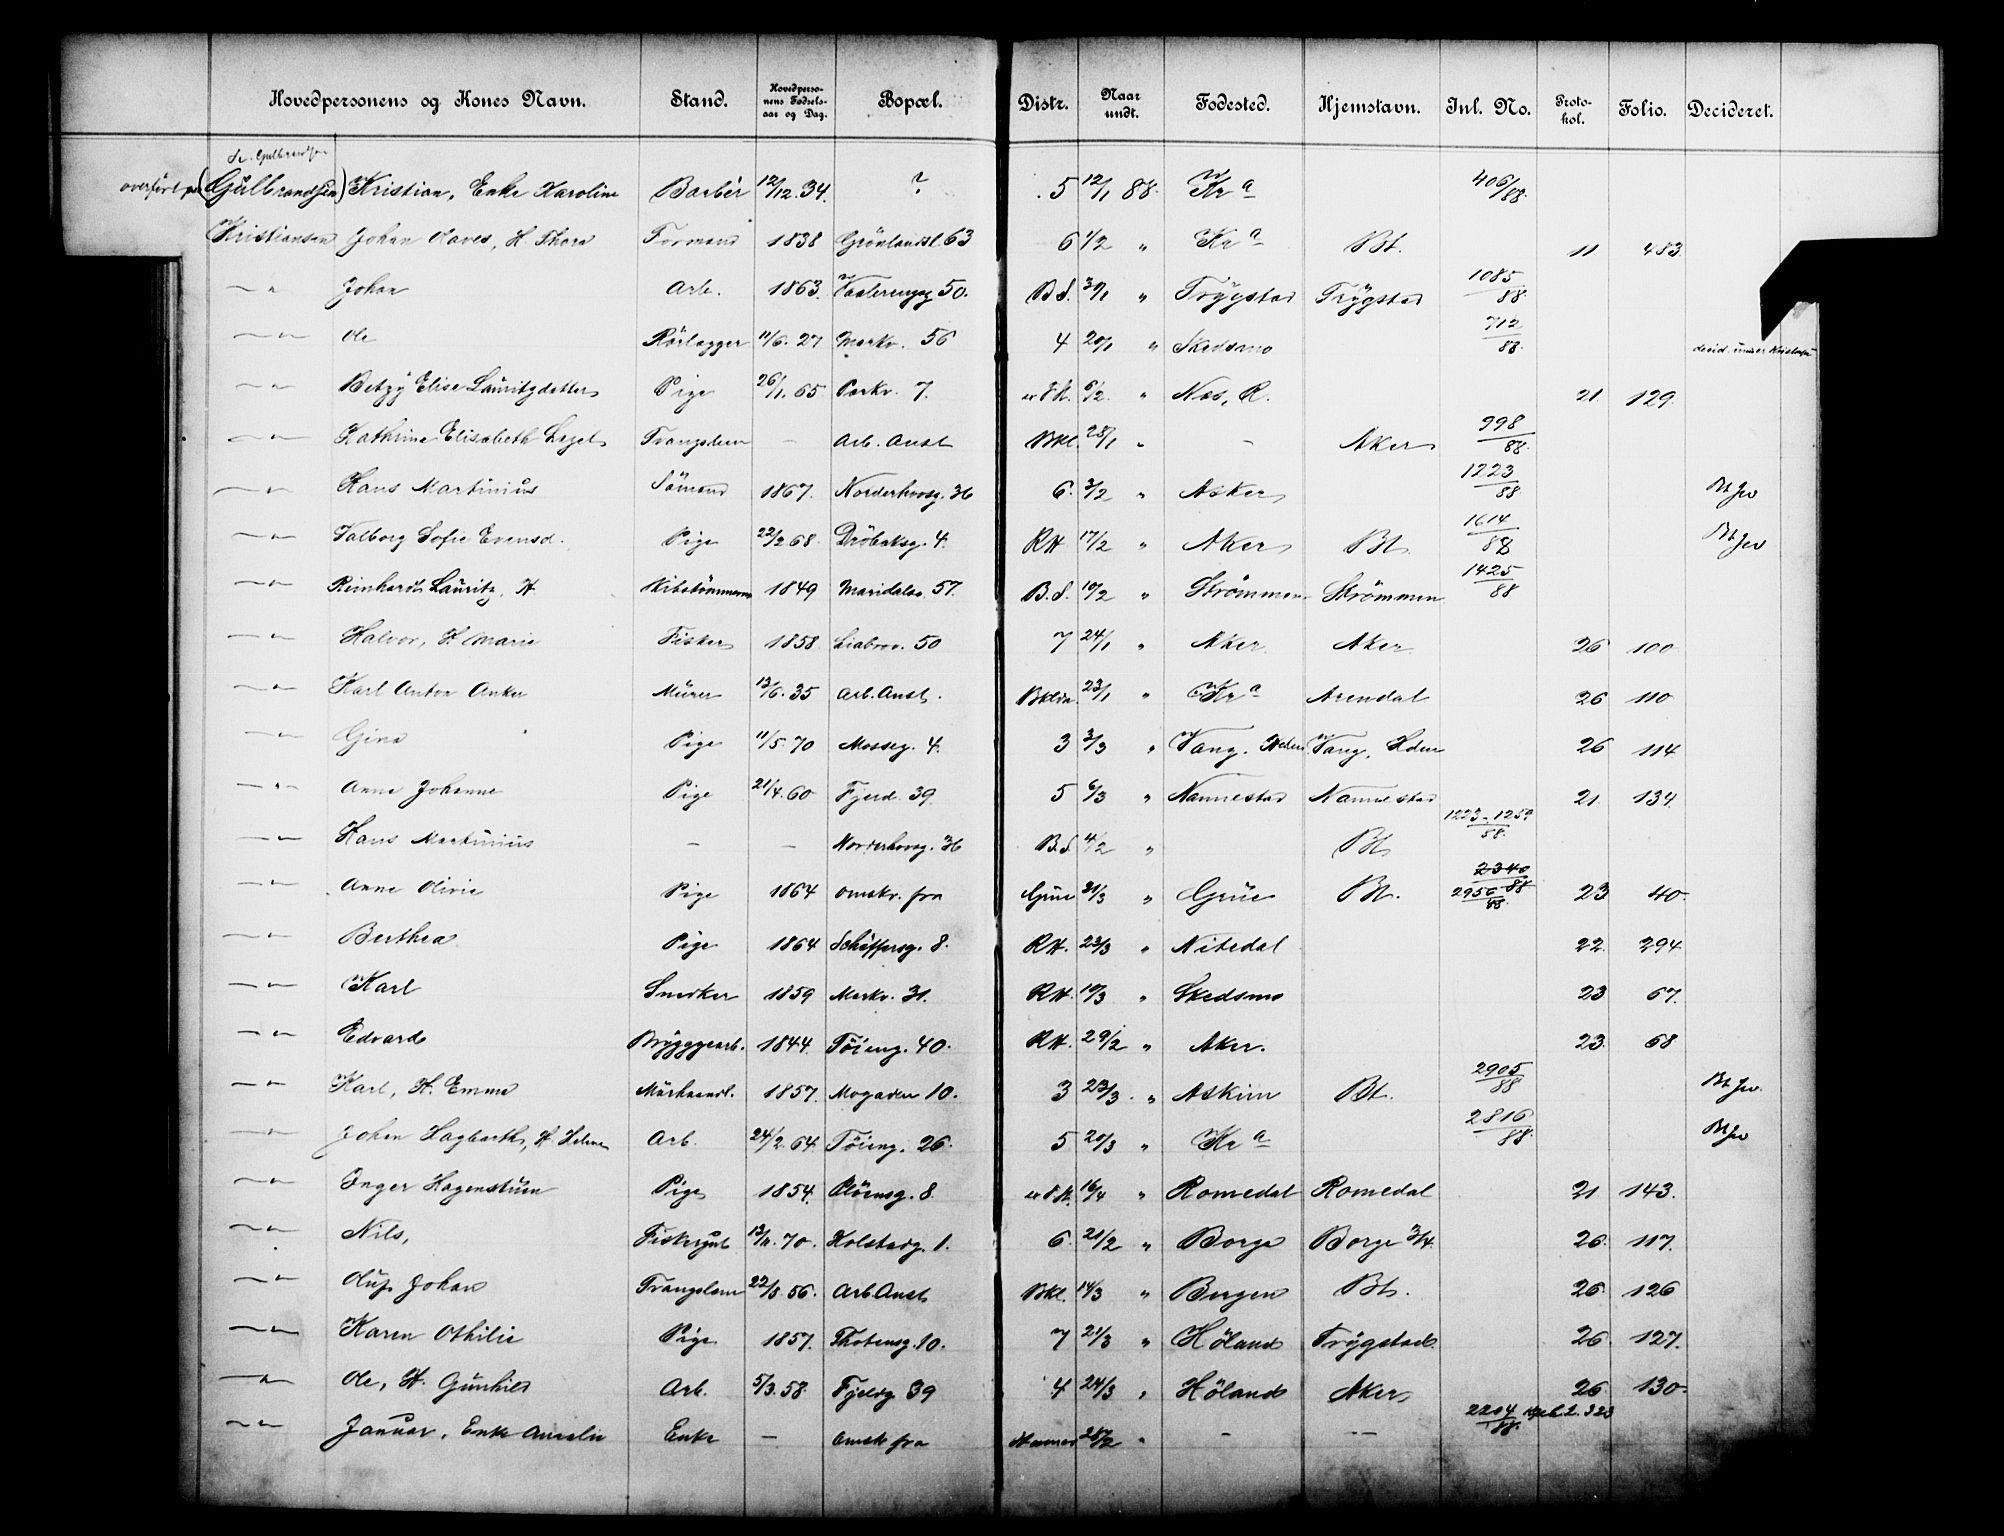 Hovedpersonens og Kones Navn. Stand. Hovedpersonens Fødselsaar og Dag. Bopæl. Distr. Naar undt. Fødested. Hjemstavn. Inl. No. Protokol. Folio. Decideret.
se Gulbrandsen
overført (Gulbrandsen) Kristian, Enke Karoline Barbér 12/12. 34. ? 5 12/1 88. Kr a 406/88.
Kristiansen Johan Olaves, H. Thora Formand 1838 Grönlandsl. 63 6 1/2 „ Kr a Bt. 11 483.
— „ — Johan Arb. 1863. Vaalerengg 50. B.d. 30/1 „ Trÿgstad Trÿgstad 1085/88.
— „ — Ole Rörlægger 11/6. 27 Markv. 56 4 20/1 „ Skedsmo 712/88. decid. under
— „ — Betzÿ Elise Lauritzdatter Pige 26/1. 65 Parkv. 7. 6/2. „ Næs, R. 21. 129.
— „ — Kathrine Elisabeth Tvangslem — Arb. Anst Bkl. 28/1 „ — Aker 998/88.
— „ — Hans Martinius Sömand 1867. Norderhovsg. 36 6. 3/2 „ Asker 1223/88
— „ — Valborg Sofie Evensd. Pige 22/2 68. Dröbaksg. 4. RH. 17/2 „ Aker Bt. 1614/88
— „ — Reinhardt Lauritz, H. Skibstömmerm 1849 Maridalsv. 57. B.d. 10/2 „ Strömmen Strömmen 1425/88
— „ — Halvor, H. Marie Fisker 1858 Liabrov. 50 7 24/1 „ Aker Aker 26 100
— „ — Karl Anton Anker Mürer 13/6. 35 Arb. Anst. 23/1 „ Kr a Arendal 26 110
— „ — Gina Pige 11/5. 70 Mosseg. 4. 3 3/3 „ Vang. Hedm. Vang, Hdm 26 114
— „ — Anne Johanne Pige 21/4. 60 Fjerd. 39 5 6/3 „ Nannestad Nannestad 21. 134.
— „ — Hans Martinius — — Norderhovsg. 36 B.d. 4/2 „ Bt. 1223 - 1259/88.
— „ — Anne Olivie Pige 1864 Omskr. fra Grue 21/3 „ Grüe Bt. 2340/88 2956/88 23 40.
— „ — Berthea Pige 1864 Schäffersg. 8. RH. 23/3 „ Nitedal 22. 294.
— „ — Karl Snedker 1859 Markv. 31. RH. 10/3 „ Skedsmo 23 67.
— „ — Edvard Brÿggearb. 1844. Töieng. 40. RH. 29/2 „ Aker. 23. 68
— „ — Karl, H. Emma 1857. Mogaden 10. 3 23/3. „ Askim Bt. 2905/88
— „ — Johan Hagbarth, H. Helene Arb. 24/2. 64. Töieng. 26. 5 20/3 „ Kr a 2816/88.
— „ — Inger Hagenstüen Pige 1854. Plöensg. 8. 16/4 „ Romedal Romedal 21 143.
— „ — Nils, Fiskergut 13/11. 70. Holstadg. 1. 6. 21/2 „ Borge Borge 3/4. 26. 117.
— „ — Oluf Johan Tvangslem 22/8. 56. Arb. Anst Bkl. 14/3 „ Bergen Bt. 26. 126
— „ — Karen Othilie Pige 1857. Thotensg. 10. 7 21/3 „ Höland Trÿgstad. 26. 127.
— „ — Ole, H. Günhild Arb. 5/3. 58. Fjeldg 39 4 24/3 „ Höland Aker 26 130.
— „ — Januar, Enke Amalie Enke — Omsk fra 28/2 „ — — 2204/88. 2. 323